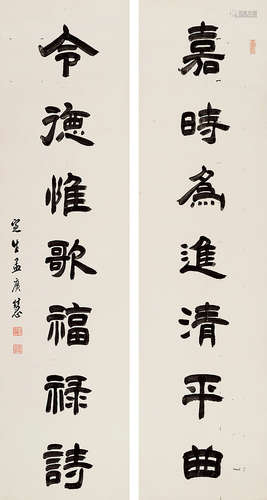 嘉時為進清平曲
令德惟歌福禄詩
定生孟廣慧